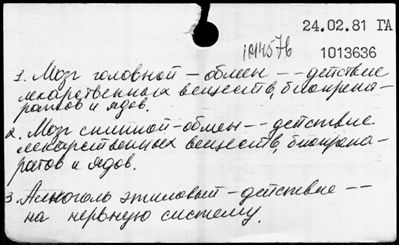 24.02.81 ГА
1014576
1013636
1. Мозг головной - обмен -- действие
лекарственных веществ, биопрепа-
ратов и ядов.
2. Мозг спинной - обмен -- действие
лекарственных веществ, биопрепа-
ратов и ядов.
3. Алкоголь этиловый - действие --
на нервную систему.